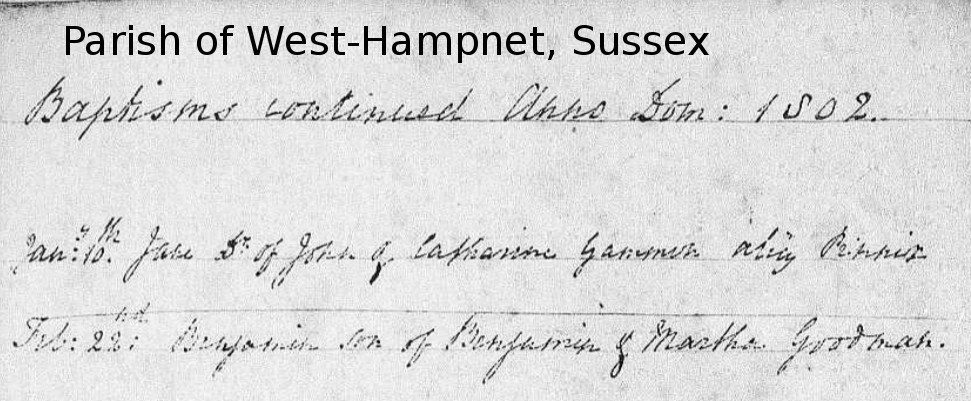 Parish of West-Hampnet, Sussex
Baptisms continued Anno Dom: 1802.
Jan:y 10.th Jane Dr. of John & Catharine Gammon alias Pinnix
Feb: 22:nd Benjamin son of Benjamin & Martha Goodman.